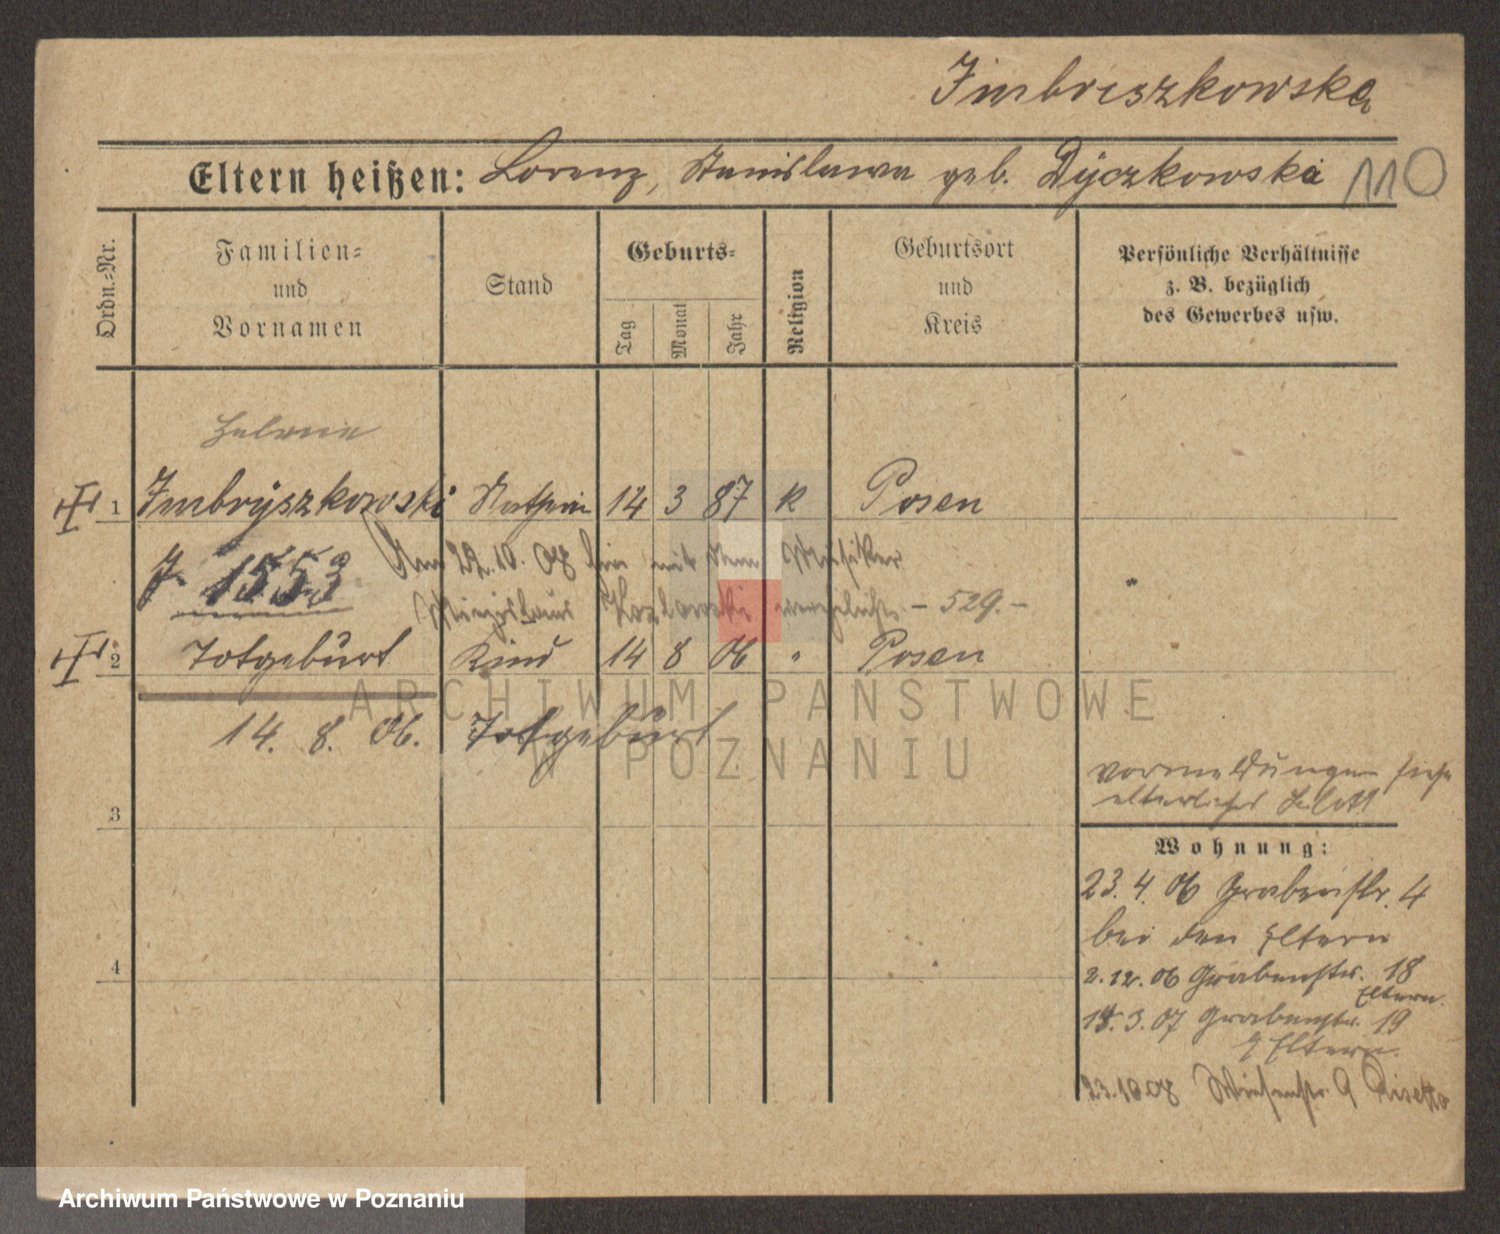 Imbriszkowska
Eltern heißen: Lorenz, Stanislawa geb. Dyczkowska 110
Ordn.-Nr.
Familien-
und
Vornamen
Stand
Geburts-
Tag
Monat
Jahr
Religion
Geburtsort
und
Kreis
Persönliche Verhältnisse
z. B. bezüglich
des Gewerbes usw.
Helene
1 Imbryszkowski 14 3 87 k Posen
1553 Am 22.10.08 hier mit dem Musiker
Kozlowski verehelicht. - 529. -
2 Totgeburt Kind 14 8 06 " Posen
14. 8. 06. Totgeburt
Vormeldungen siehe
elterliches Blatt
3
Wohnung:
23. 4. 06 Grabenstr. 4
bei den Eltern
4
2. 12. 06 Grabenstr. 18
Eltern.
3. 07 Grabenstr. 19
Eltern.
Wiesenstr. 9
ARCHIWUM PAŃSTWOWE
W POZNANIU
Archiwum Państwowe w Poznaniu